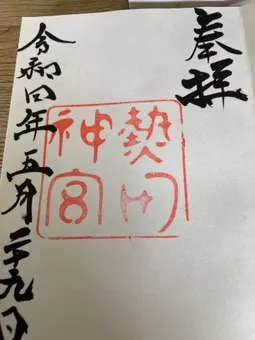 奉拝
熱田
神宮
令和四年五月二十九日